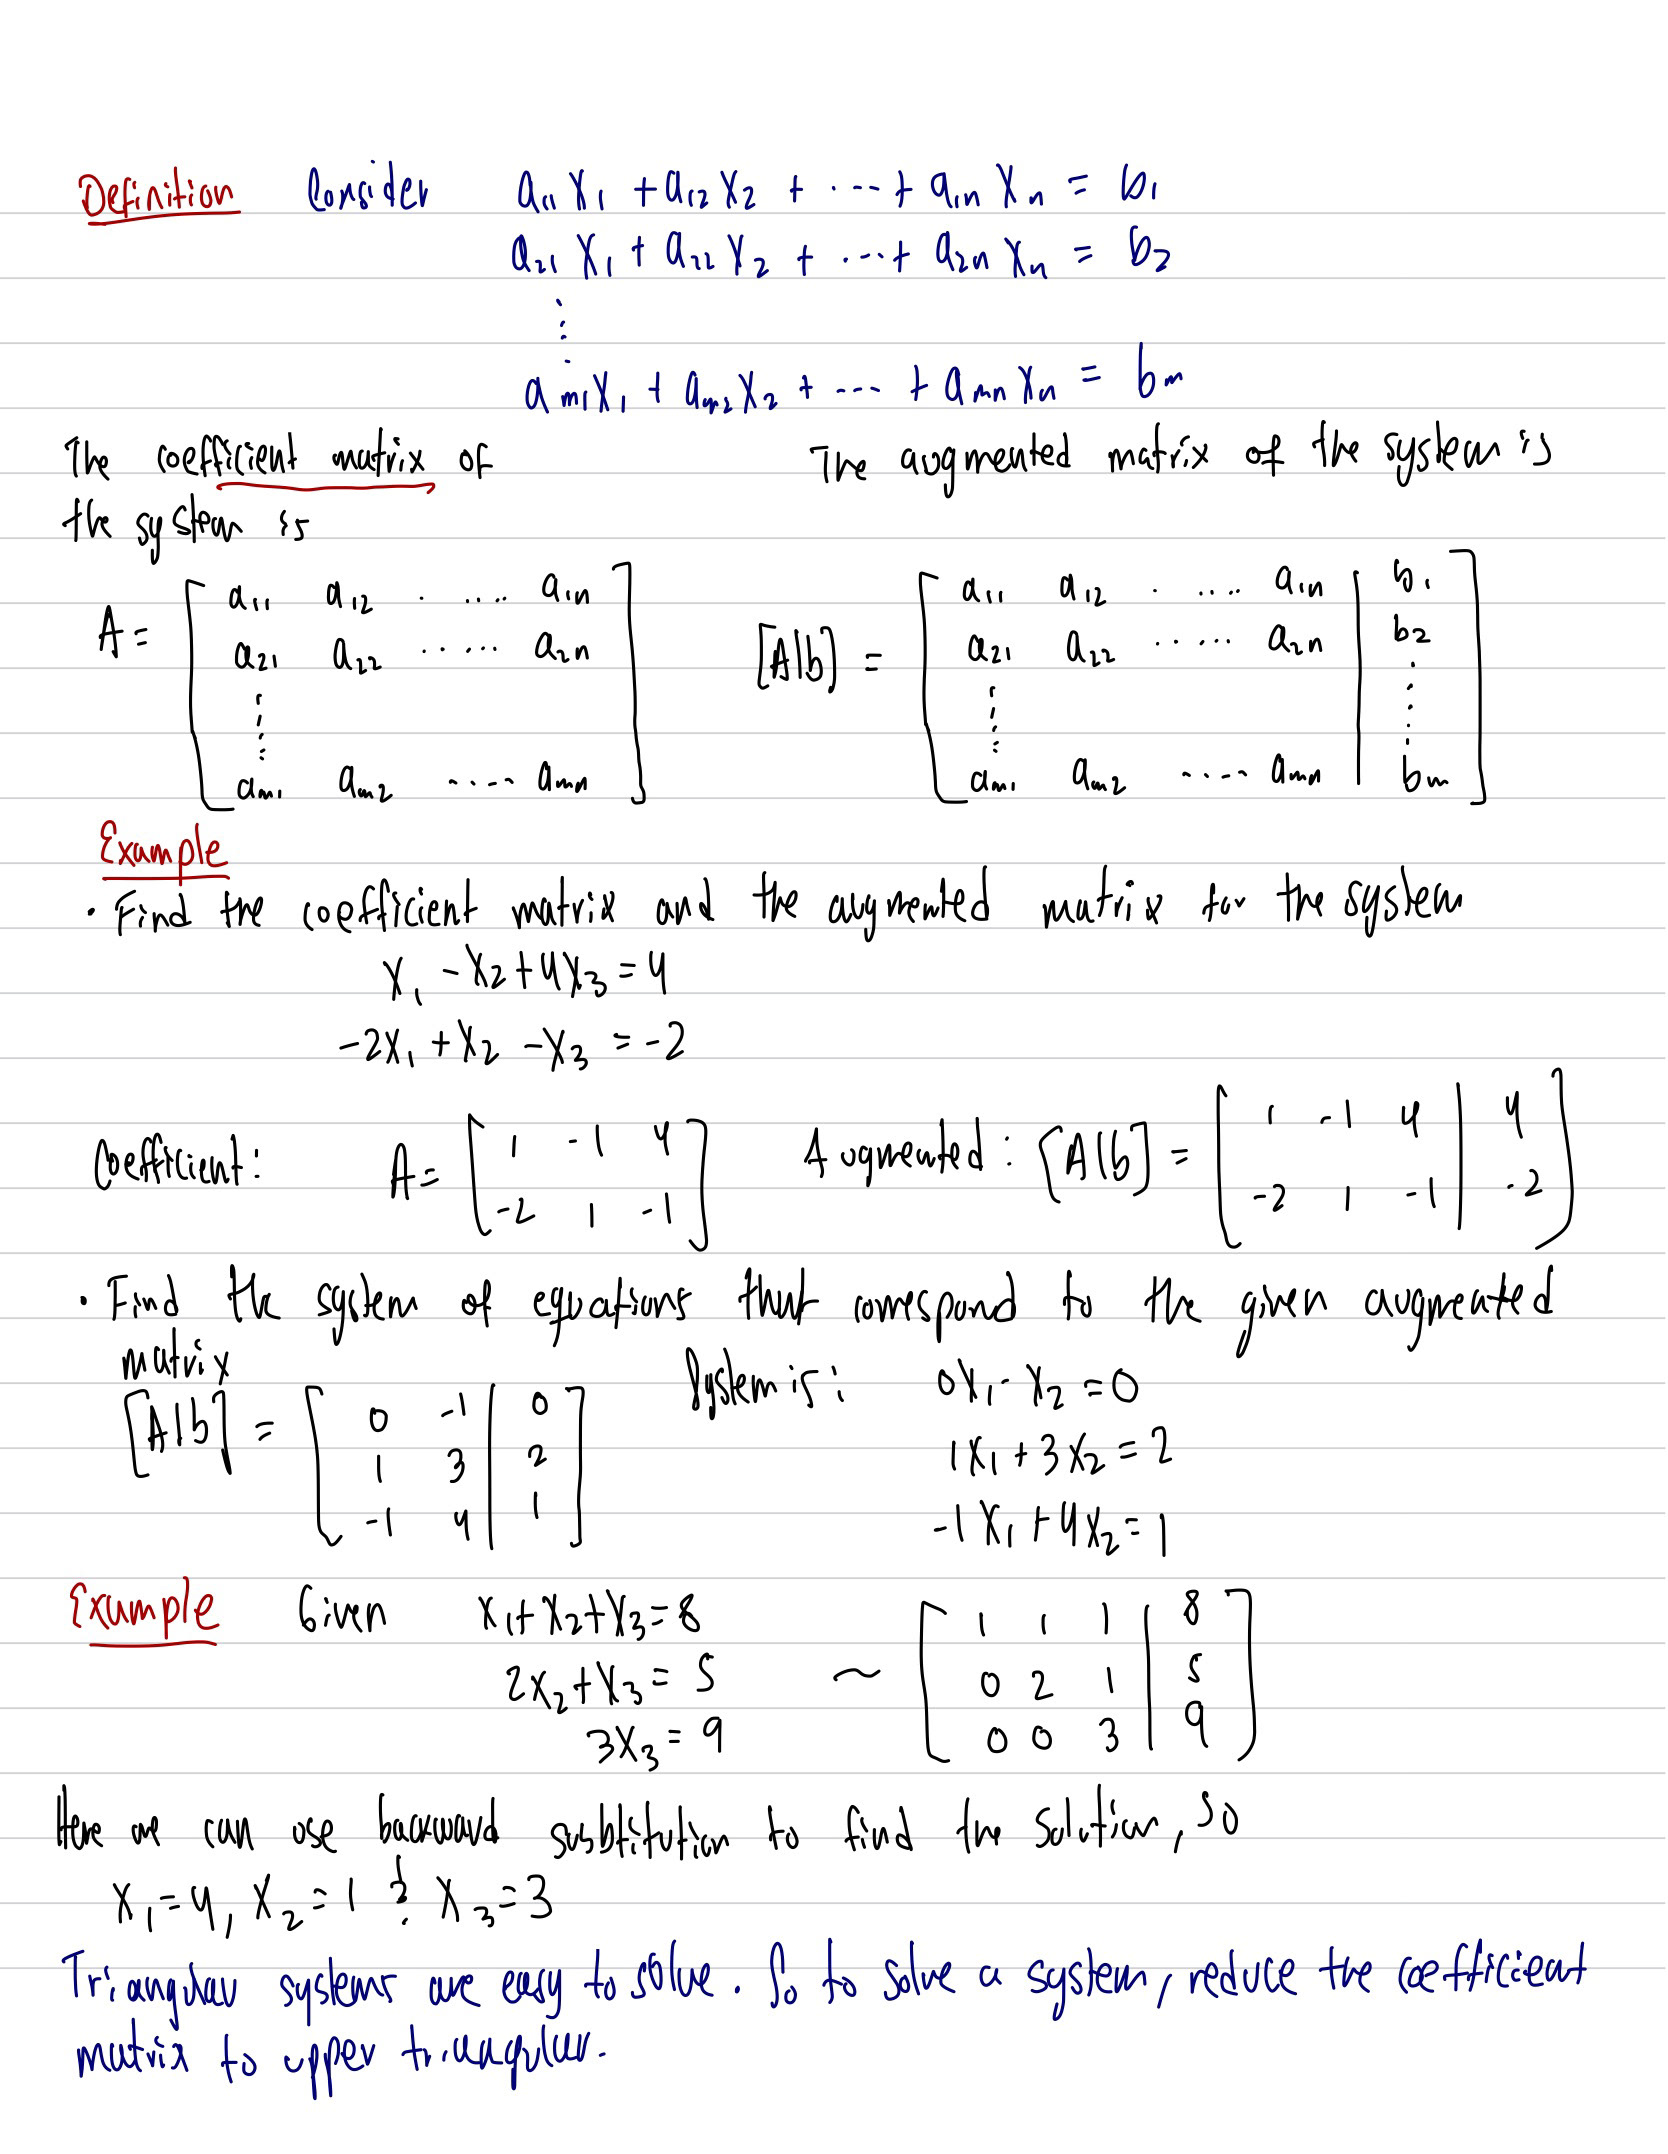 Definition Consider a₁₁x₁ + a₁₂x₂ + ⋯ + a₁ₙxₙ = b₁
a₂₁x₁ + a₂₂x₂ + ⋯ + a₂ₙxₙ = b₂
⋮
aₘ₁x₁ + aₘ₂x₂ + ⋯ + aₘₙxₙ = bₘ
The coefficient matrix of
the system is
The augmented matrix of the system is
A = [ a₁₁ a₁₂ ⋯ a₁ₙ
a₂₁ a₂₂ ⋯ a₂ₙ
⋮
aₘ₁ aₘ₂ ⋯ aₘₙ ]
[A|b] = [ a₁₁ a₁₂ ⋯ a₁ₙ | b₁
a₂₁ a₂₂ ⋯ a₂ₙ | b₂
⋮ | ⋮
aₘ₁ aₘ₂ ⋯ aₘₙ | bₘ ]
Example
• Find the coefficient matrix and the augmented matrix for the system
x₁ - x₂ + 4x₃ = 4
-2x₁ + x₂ - x₃ = -2
Coefficient: A = [ 1 -1 4
-2 1 -1 ]
Augmented: [A|b] = [ 1 -1 4 | 4
-2 1 -1 | -2 ]
• Find the system of equations that correspond to the given augmented
matrix
[A|b] = [ 0 -1 | 0
1 3 | 2
-1 4 | 1 ]
System is: 0x₁ - x₂ = 0
1x₁ + 3x₂ = 2
-1x₁ + 4x₂ = 1
Example Given x₁ + x₂ + x₃ = 8
2x₂ + x₃ = 5
3x₃ = 9
~ [ 1 1 1 | 8
0 2 1 | 5
0 0 3 | 9 ]
Here we can use backward subtitution to find the solution, so
x₁ = 4, x₂ = 1 & x₃ = 3
Triangular systems are easy to solve. So to solve a system, reduce the coefficient
matrix to upper triangular.